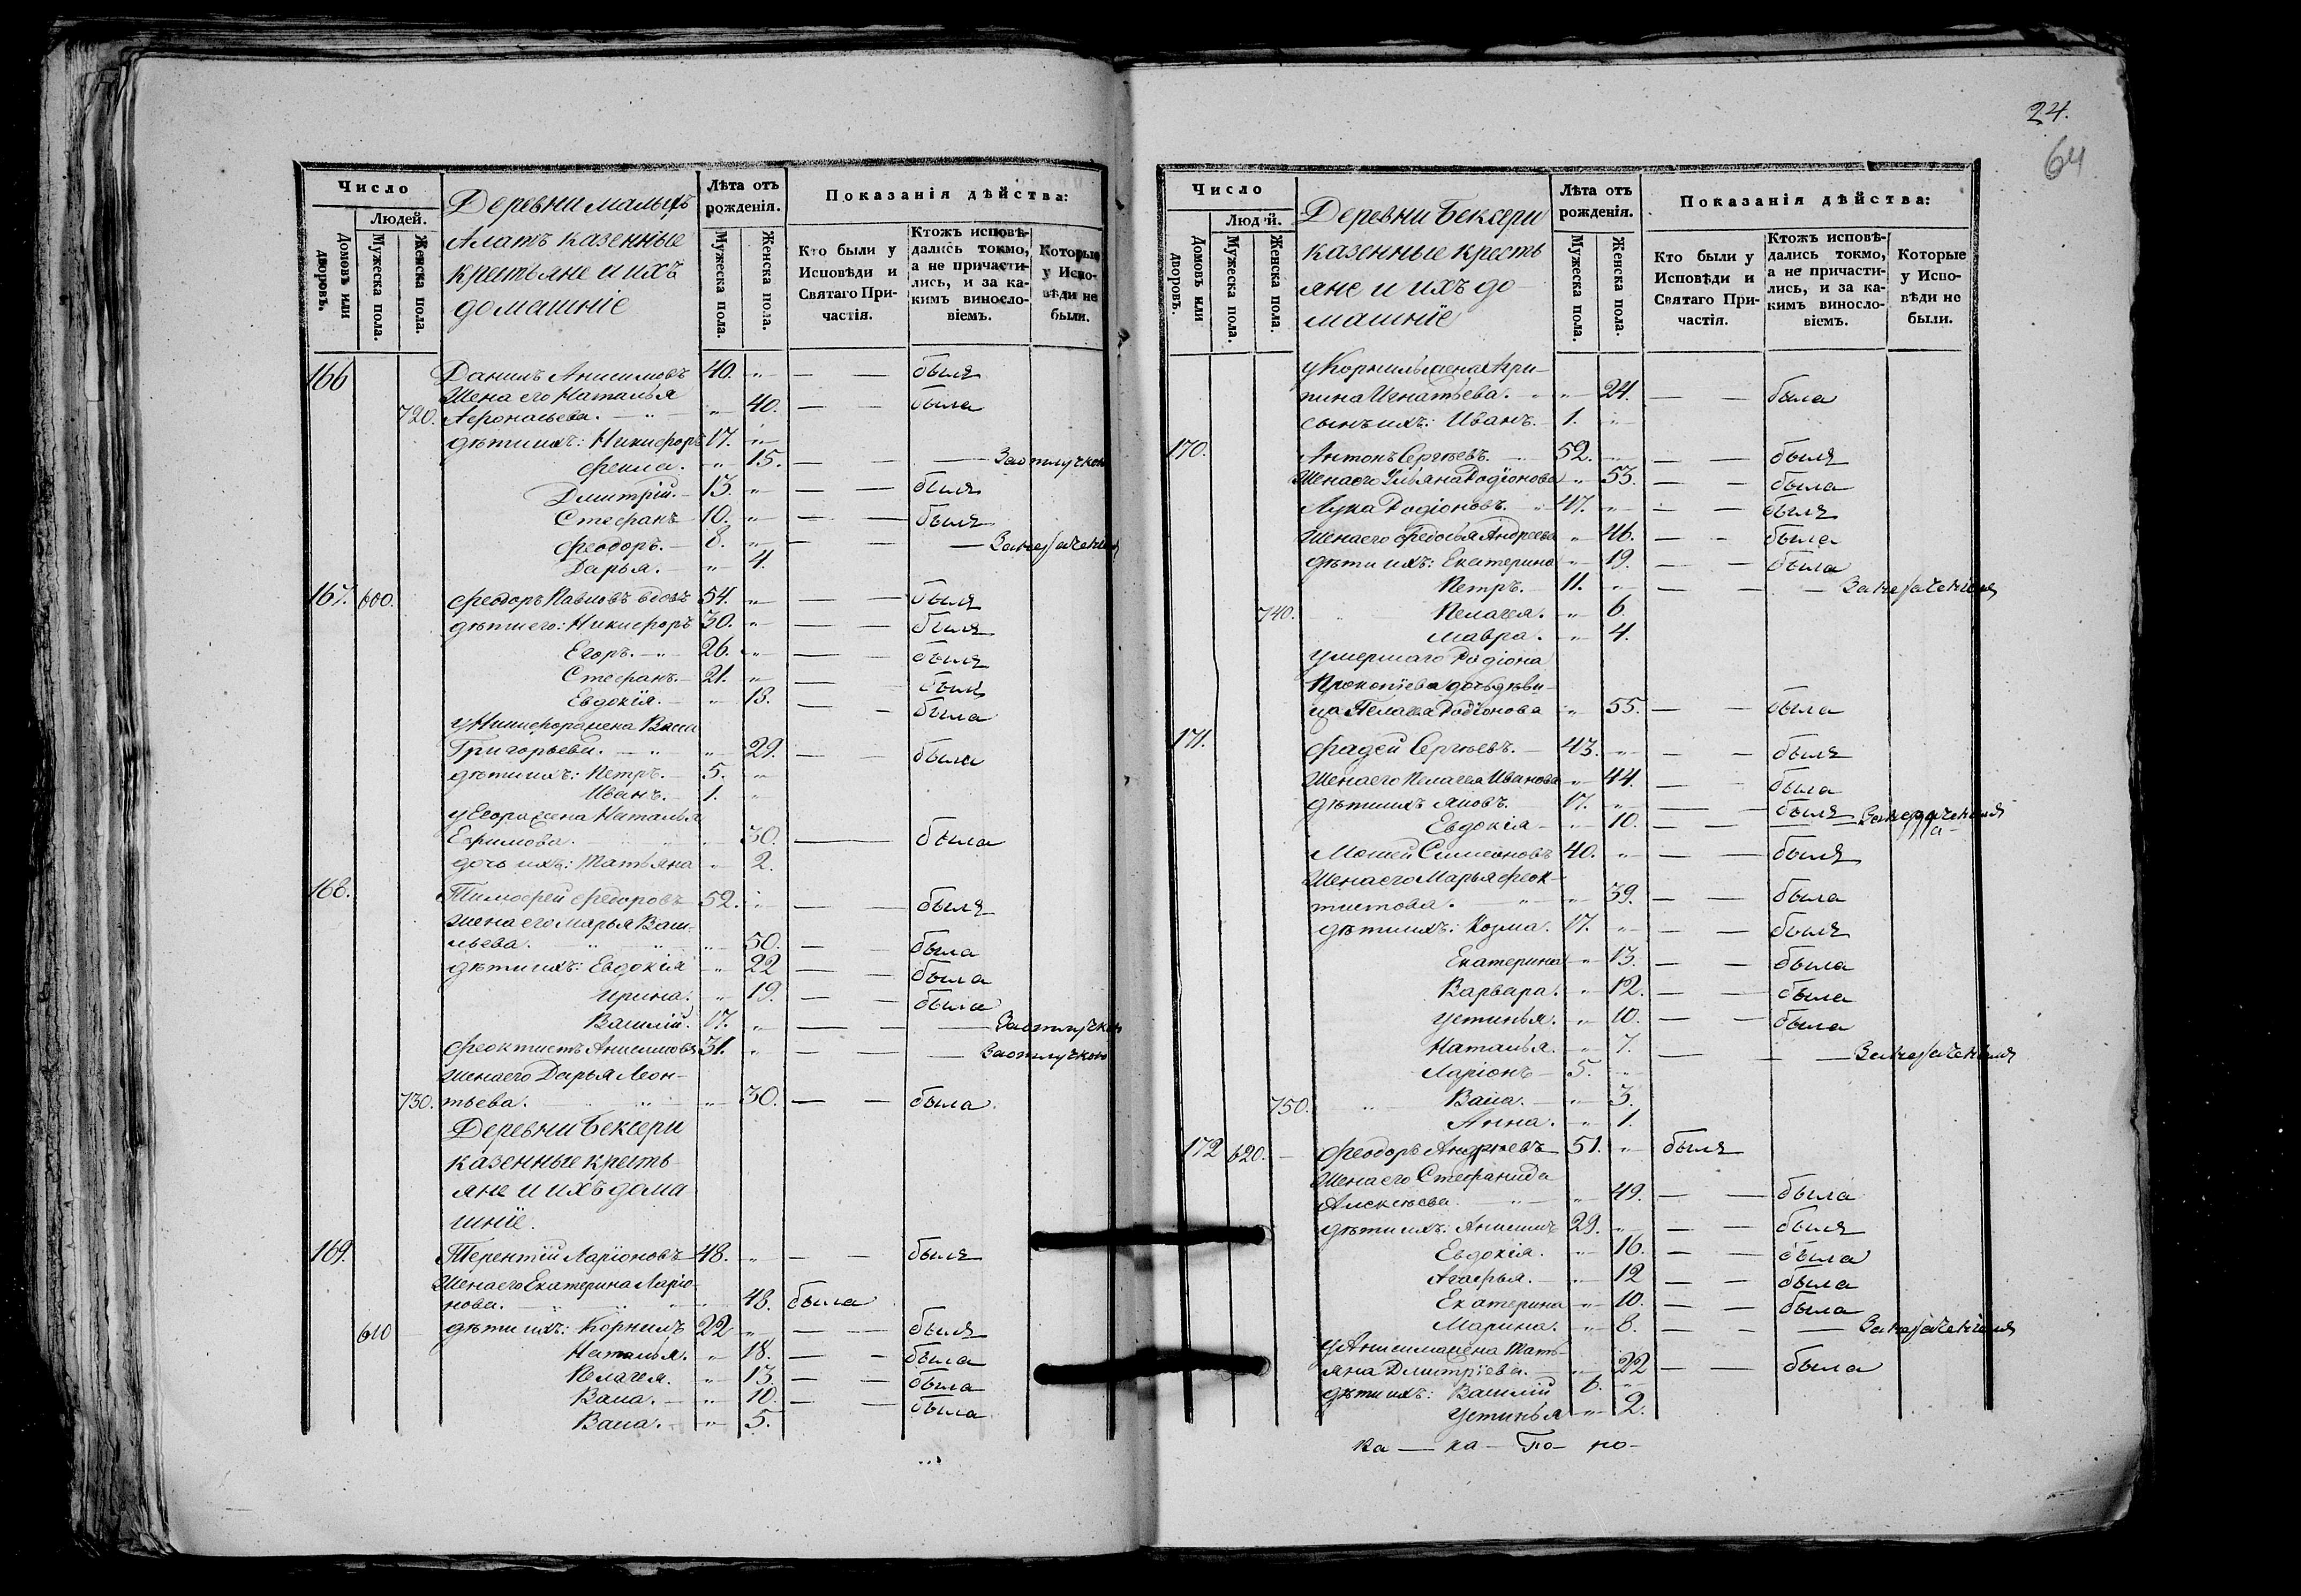 Число
Людей.
Домовъ или дворовъ.
Мужеска пола.
Женска пола.
Деревни малыхъ
Алатъ казенные
крестьяне и ихъ
домашніе
Лѣта отъ рожденія.
Мужеска пола.
Женска пола.
Показанія дѣйства:
Кто были у Исповѣди и Святаго Причастія.
Ктожъ исповѣдались токмо, а не причастились, и за какимъ винословіемъ.
Которые у Исповѣди не были.
166 Данилъ Анисимовъ 40. „ — — былъ
Жена его Наталья
720. Афонасьева. — „ „ 40. — — была
дѣти ихъ: Никифоръ 17. „
Фекла. „ 15. — — За отлучкою
Дмитрій. 13. „ — — былъ
Стефанъ 10. „ — — былъ
Феодоръ. 8. „ — — —
Дарья. „ 4.
167. 600. Феодоръ Павловъ вдовъ 54. „ — — былъ
дѣти его: Никифоръ 30. „ — — былъ
Егоръ. „ 26. „ — — былъ
Стефанъ. 21. „ — — былъ
Евдокія. „ 18. — — была
у Никифора жена Васса
Григорьева. — „ „ 29. — — была
дѣти ихъ: Петръ. 5. „
Иванъ. 1. „
у Егора жена Наталья
Ефимова. „ 30. — — была
дочь ихъ: Татьяна „ 2.
168. Тимофей Федоровъ 52. „ — — былъ
жена его Марья Васи-
льева. „ „ „ 50. — — была
дѣти ихъ: Евдокія „ 22 — — была
Ирина. „ 19. — — была
Василій. 17. „ — — — За отлучкою
Феоктистъ Анисимовъ 31. „ — — — За отлучкою
Жена его Дарья Леон-
730. тьева. „ „ 30. — — была.
Деревни Бексери
казенные кресть-
яне и ихъ дома
шніе.
169. Терентій Ларіоновъ 48. „ — — былъ
Жена его Екатерина Ларіо-
нова. „ „ „ 48. была
610 дѣти ихъ: Корнилъ 22 „ — — былъ
Наталья. „ 18. — — была
Пелагея. „ 13. — — была
Васса. „ 10. — — была
Васса. „ 5.
24.
64
Число
Людей.
Домовъ или дворовъ.
Мужеска пола.
Женска пола.
Деревни Бексери
казенные кресть
яне и ихъ до-
машніе
Лѣта отъ рожденія.
Мужеска пола.
Женска пола.
Показанія дѣйства:
Кто были у Исповѣди и Святаго Причастія.
Ктожъ исповѣдались токмо, а не причастились, и за какимъ винословіемъ.
Которые у Исповѣди не были.
у Корнилы жена Агри-
пина Игнатьева. „ „ 24. — — была
сынъ ихъ: Иванъ. 1. „
170. Антонъ Сергѣевъ. 52. „ — — былъ
Жена его Ульяна Родіонова „ 53. — — была
Лука Родіоновъ. 47. „ — — былъ
Жена его Федосья Андреева „ 46. — — была
дѣти ихъ: Екатерина „ 19. — — была
Петръ. 11. „ — — —
740. „ Пелагея. „ 6.
Мавра. „ 4.
умершаго Родіона
Прокопіева дочь дѣви-
ца Пелагея Родіонова „ 55. — — была
171. Фадей Сергѣевъ. 43. „ — — былъ
Жена его Пелагея Иванова „ 44. — — была
дѣти ихъ Яковъ. 17. „ — — былъ
Евдокія „ 10. — — —
Мосей Симеоновъ 40. „ — — былъ
Жена его Марья Феок-
тистова. „ „ 39. — — была
дѣти ихъ: Козма. 17. „ — — былъ
Екатерина „ 13. — — была
Варвара. „ 12. — — была
Устинья. „ 10. — — была
Наталья. „ 7. — — —
Ларіонъ 5. „
750. „ Васса. „ 3.
Анна. „ 1.
172 620. Феодоръ Андреевъ 51. „ былъ
Жена его Стефанида
Алексѣева. „ „ 49. — — была
дѣти ихъ: Анисимъ 29. „ — — былъ
Евдокія. „ 16. — — была
Агафья. „ 12 — — была
Екатерина „ 10. — — была
Марина. „ 8. — — —
у Анисима жена Тать-
яна Дмитріева. „ 22 — — была
дѣти ихъ: Василій 6. „
Устинья „ 2.
ка — ка — По — но —